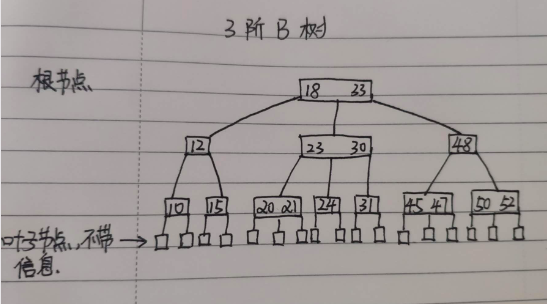 3阶B树
根节点
18 33
12 23 30 48
10 15 20 21 24 31 45 47 50 52
叶子节点,不带
信息.